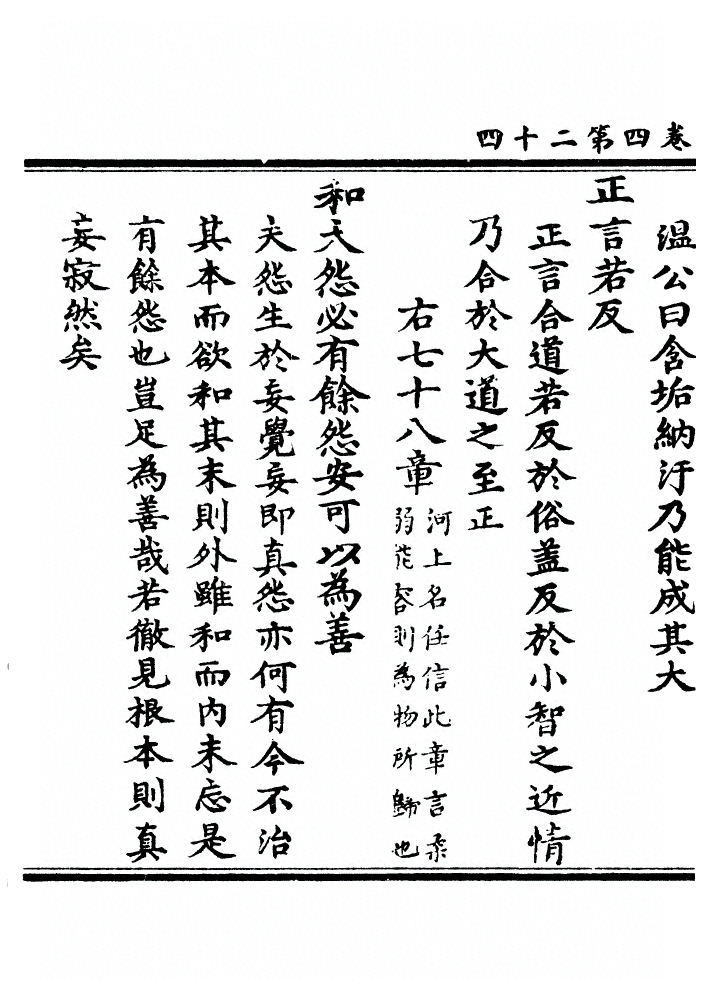 卷四第二十四
温公曰含垢納汙乃能成其大
正言若反
正言合道若反於俗盖反於小智之近情
乃合於大道之至正
右七十八章
河上名任信此章言柔
弱能容則為物所歸也
和大怨必有餘怨安可以為善
夫怨生於妄覺妄即真怨亦何有今不治
其本而欲和其末則外雖和而内未忘是
有餘怨也豈足為善哉若徹見根本則真
妄寂然矣